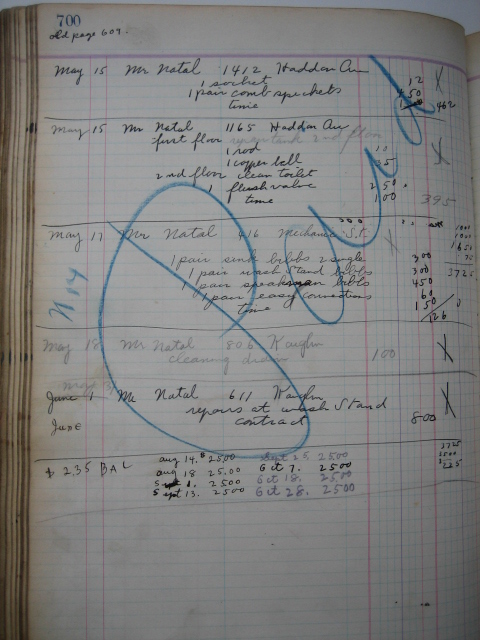 700
old page 609.
May 15 Mr Natal 1412 Haddon Av
1 socket 12
1 pair comb speckets 450
time 462
May 15 Mr Natal 1165 Haddon Av
first floor 2nd floor
1 rod
1 copper ball
2nd floor clean toilet
1 flush valve 250
time 100 395
May 17 Mr Natal 416 Mechanic St.
1 pair sink bibbs 2 single 300
1 pair wash stand bibbs 300 3725
1 pair speakman bibbs 450
1 pair easy connections 60
time 150
126
May 18 Mr Natal 806 Kaighn
cleaning drain 100
June 1 Mr Natal 611 Kaighn
repairs at wash stand
June contract 800
$ 235 BAL aug 14. $2500 Sept 25. 2500
aug 18 25.00 Oct 7. 2500
2500 Oct 18. 2500
Sept 13. 2500 Oct 28. 2500
Paid